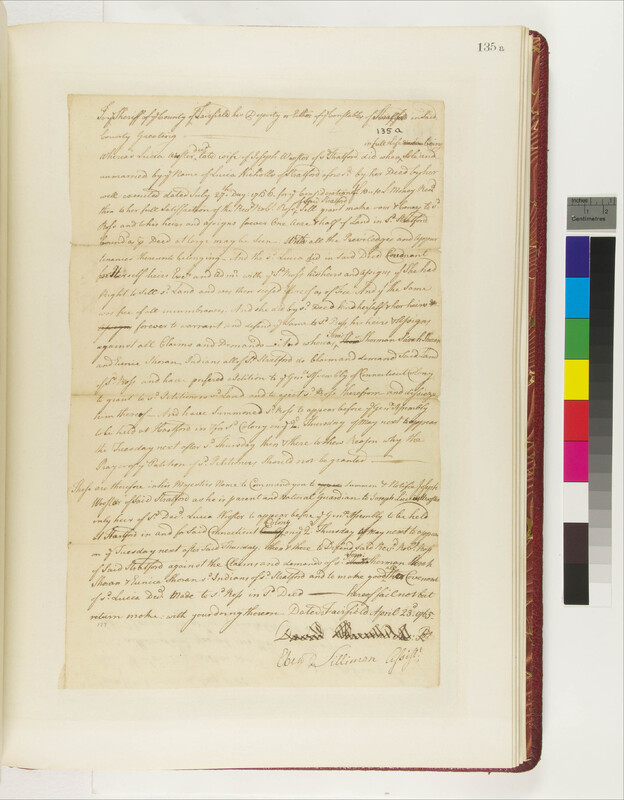 135 B
135 a
To ye Sheriff of ye County of Fairfield his Deputy or Either of ye Constables of Stratford in said
County Greeting
Whereas Lucia Wooster late wife of Joseph Wooster of sd Stratford did when sole and
unmarried by ye Name of Lucia Nicholls of Stratford by her Deed
well executed dated July 27th Day 1756 for ye Consideration
then to her full Satisfaction of the Revd Ross of said Stratford sell grant make over & convey to sd
Ross and to his heirs and assigns forever One Acre & half of Land in sd Stratford
Bound as ye Deed at large may be seen With all the Priviledges and Appur
tenances thereunto belonging And the sd Lucia did in said Deed Covenant
for Herself heirs with ye sd Ross his heirs and assigns yt She had
Right to Sell sd Land and was then seised of as of Fee And yt the Same
was free of all incumbrances And she did by sd Deed bind herself & her heirs
forever to warrant and defend ye Same to sd Ross his heirs & Assigns
against all Claims and Demands And whereas Sherman Sarah Shoran
and Eunice Shoran Indians all of sd Stratford do Claim and demand said Land
of sd Ross and have prefered a Petition to ye Genl Assembly of Connecticut Colony
to grant to sd Petitioners sd Land and to eject sd Ross therefrom and
him thereof And have Summoned sd Ross to appear before ye Genl Assembly
to be held at Hartford in & for sd Colony on ye 2d Thursday of May next to appear
the Tuesday next after sd Thursday then & there to shew Reason why the
Prayer of ye Petition of sd Petitioners should not be granted
These are therefore in his Majesties Name to Command you to summon & Notifie Joseph
Wooster of said Stratford as he is parent and Natural Guardian to Joseph Wooster
only heir of sd Decd Lucia Wooster to appear before ye Genl Assembly to be held
at Hartford in and for Said Connecticut Colony on ye 2d Thursday of May next to appear
on ye Tuesday next after Said Thursday then & there to Defend said Revd Ross
of Said Stratford against the Claims and demands of sd Sherman Sarah
Shoran & Eunice Shoran sd Indians of sd Stratford and to make good ye Covenant
of sd Lucia Decd Made to sd Ross in sd Deed hereof fail not but
return make with your doings thereon Dated Fairfield April 23d 1765
Ebenr Silliman Assistt
137
Inches
1
2
Centimetres